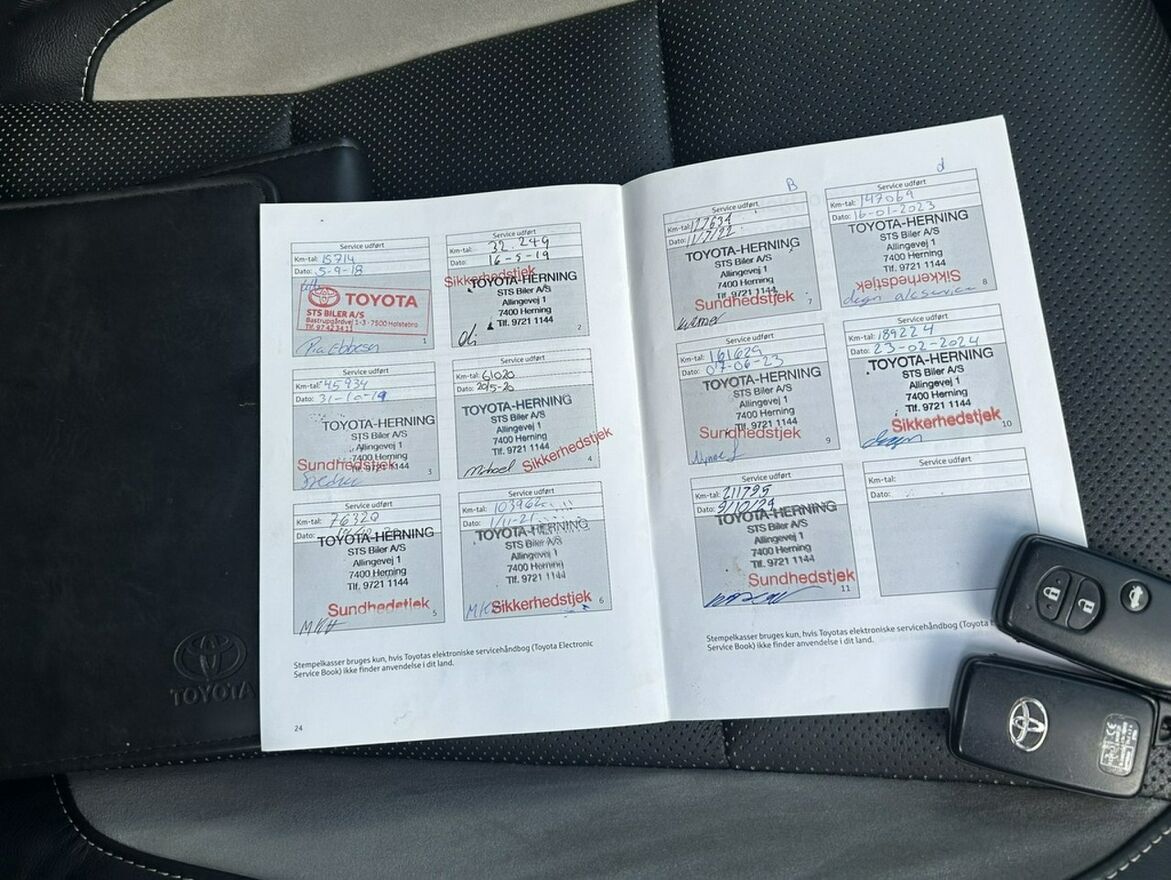 TOYOTA
Service udført
Km-tal: 15714
Dato: 5-9-18
TOYOTA
STS BILER A/S
Bastrupgårdvej 1-3 · 7500 Holstebro
Tlf. 97 42 34 11
Pia Ebbesen
1
Service udført
Km-tal: 32.249
Dato: 16-5-19
Sikkerhedstjek
TOYOTA-HERNING
STS Biler A/S
Allingevej 1
7400 Herning
Tlf. 9721 1144
2
Service udført
Km-tal: 45934
Dato: 31-10-19
TOYOTA-HERNING
STS Biler A/S
Allingevej 1
7400 Herning
Sundhedstjek
Tlf. 9721 1144
3
Service udført
Km-tal: 61020
Dato: 20/5-20
TOYOTA-HERNING
STS Biler A/S
Allingevej 1
7400 Herning
Tlf. 9721 1144
Sikkerhedstjek
4
Service udført
Km-tal: 76320
Dato:
TOYOTA-HERNING
STS Biler A/S
Allingevej 1
7400 Herning
Tlf. 9721 1144
Sundhedstjek
MKH
5
Service udført
Km-tal: 103962
Dato: 1/11-21
TOYOTA-HERNING
STS Biler A/S
Allingevej 1
7400 Herning
Tlf. 9721 1144
Sikkerhedstjek
6
Stempelkasser bruges kun, hvis Toyotas elektroniske servicehåndbog (Toyota Electronic
Service Book) ikke finder anvendelse i dit land.
24
B
Service udført
Km-tal: 127634
Dato: 11/7/22
TOYOTA-HERNING
STS Biler A/S
Allingevej 1
7400 Herning
Tlf. 9721 1144
Sundhedstjek
7
d
Service udført
Km-tal: 147069
Dato: 16-01-2023
TOYOTA-HERNING
STS Biler A/S
Allingevej 1
7400 Herning
Tlf. 9721 1144
Sikkerhedstjek
8
Service udført
Km-tal: 161629
Dato: 07-06-23
TOYOTA-HERNING
STS Biler A/S
Allingevej 1
7400 Herning
Tlf. 9721 1144
Sundhedstjek
9
Service udført
Km-tal: 189224
Dato: 23-02-2024
TOYOTA-HERNING
STS Biler A/S
Allingevej 1
7400 Herning
Tlf. 9721 1144
Sikkerhedstjek
10
Service udført
Km-tal: 211795
Dato: 9/10/24
TOYOTA-HERNING
STS Biler A/S
Allingevej 1
7400 Herning
Tlf. 9721 1144
Sundhedstjek
11
Service udført
Km-tal:
Dato:
Stempelkasser bruges kun, hvis Toyotas elektroniske servicehåndbog (Toyota
Service Book) ikke finder anvendelse i dit land.